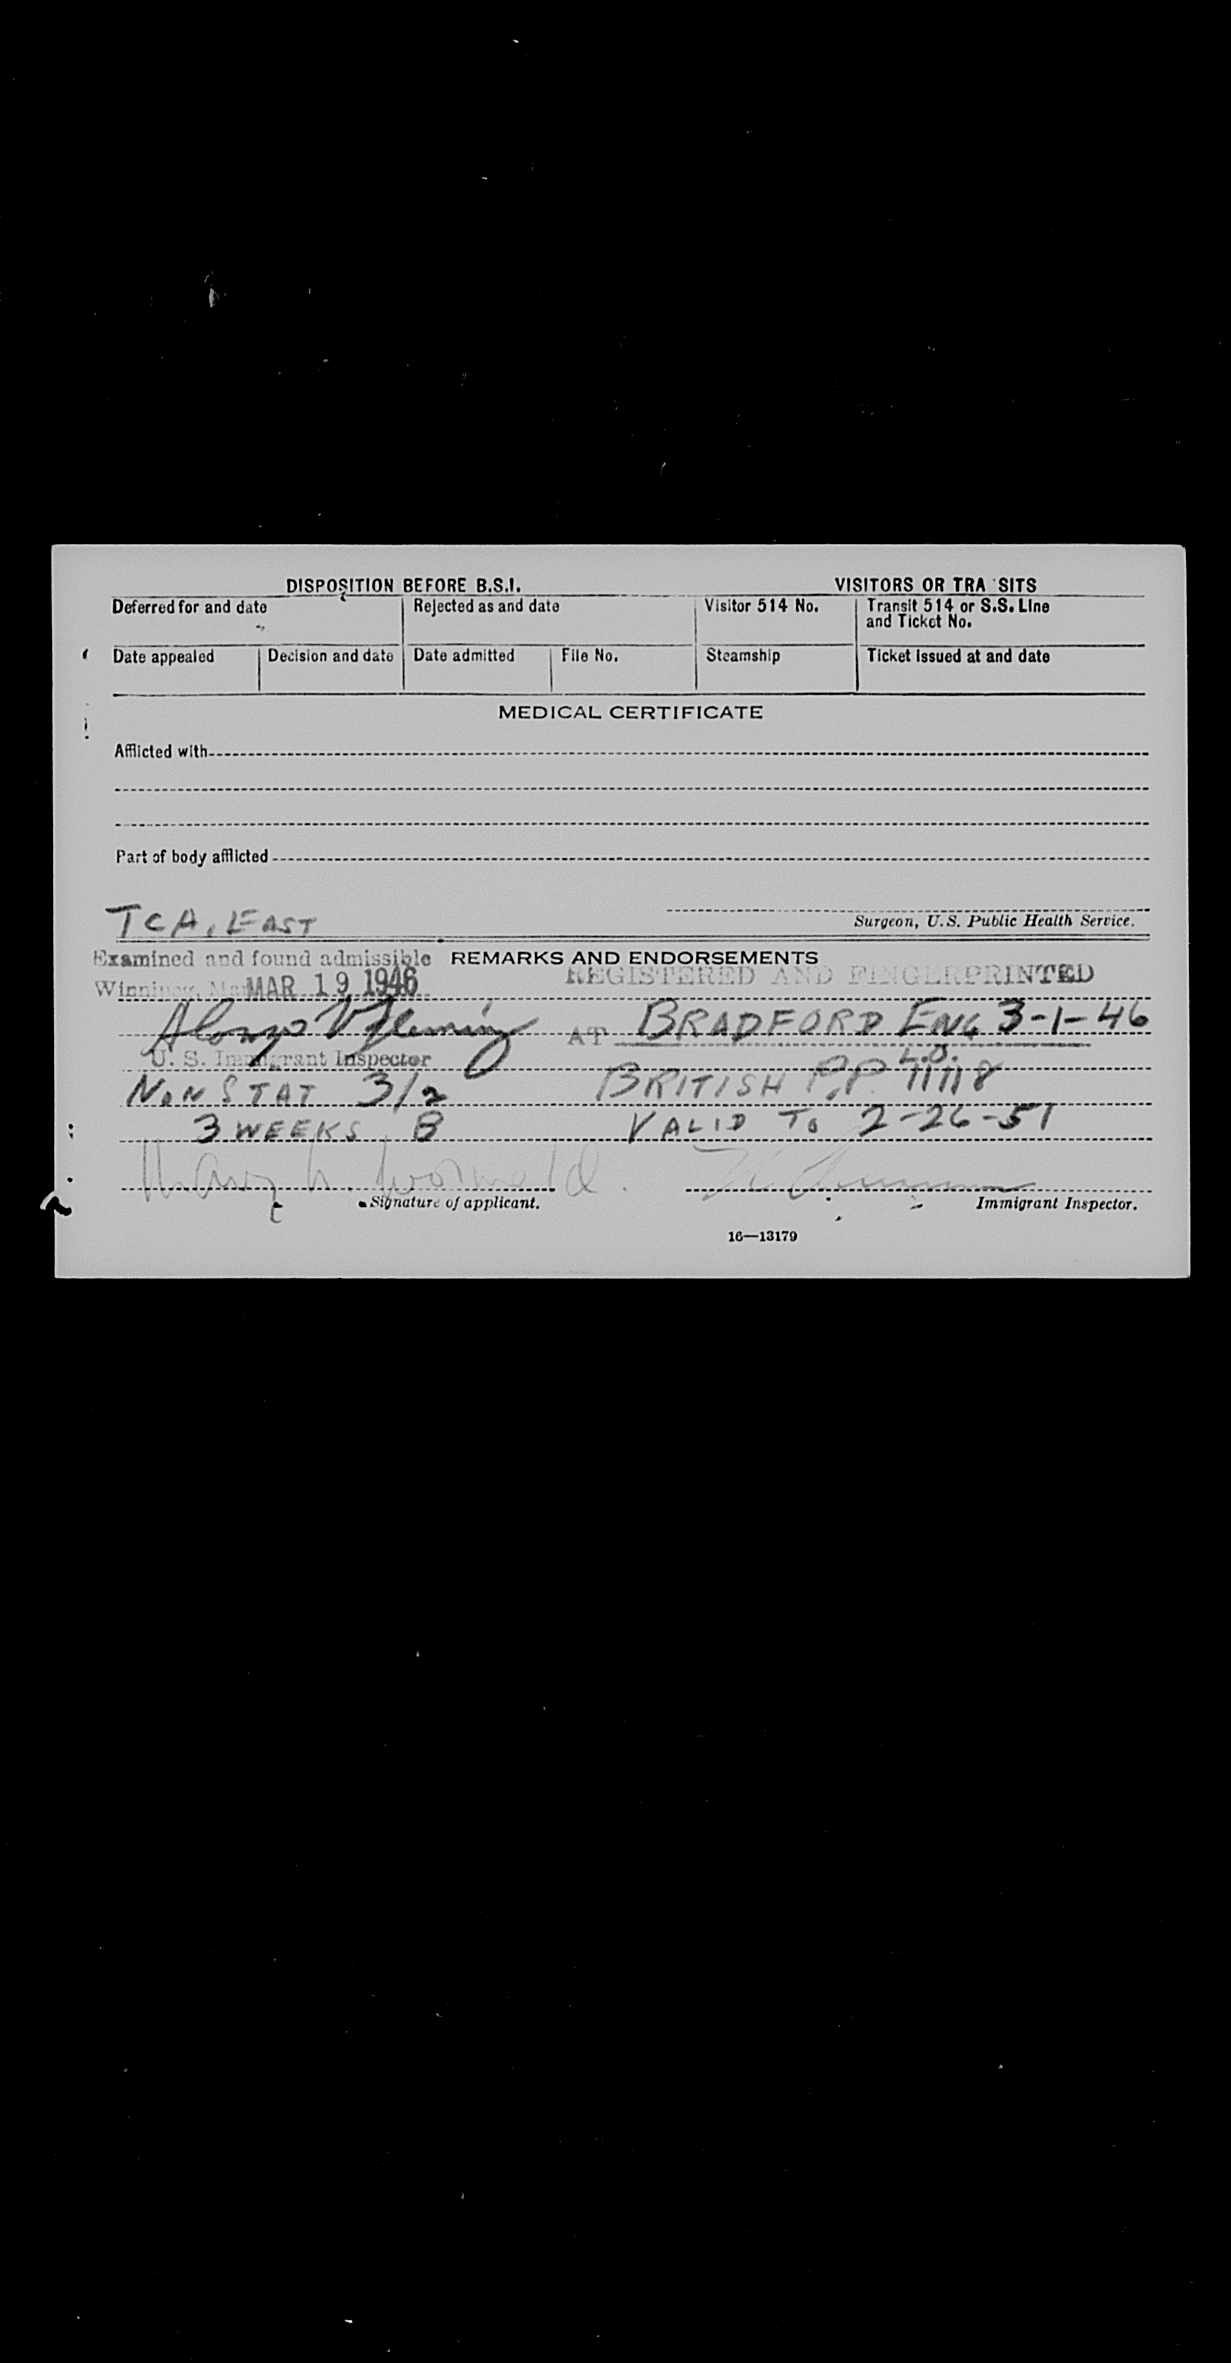 DISPOSITION BEFORE B.S.I. VISITORS OR TRA SITS
Deferred for and date Rejected as and date Visitor 514 No. Transit 514 or S.S. Line and Ticket No.
Date appealed Decision and date Date admitted File No. Steamship Ticket issued at and date
MEDICAL CERTIFICATE
Afflicted with
Part of body afflicted
TCA, EAST
Surgeon, U.S. Public Health Service.
Examined and found admissible REMARKS AND ENDORSEMENTS
REGISTERED AND FINGERPRINTED
Winnipeg, MAR 19 1946
Alonzo V Fleming AT BRADFORD ENG 3-1-46
U. S. Immigrant Inspector L.O.
NON STAT 3/2 BRITISH P.P. 71118
3 WEEKS B VALID TO 2-26-51
Signature of applicant. Immigrant Inspector.
16—13179